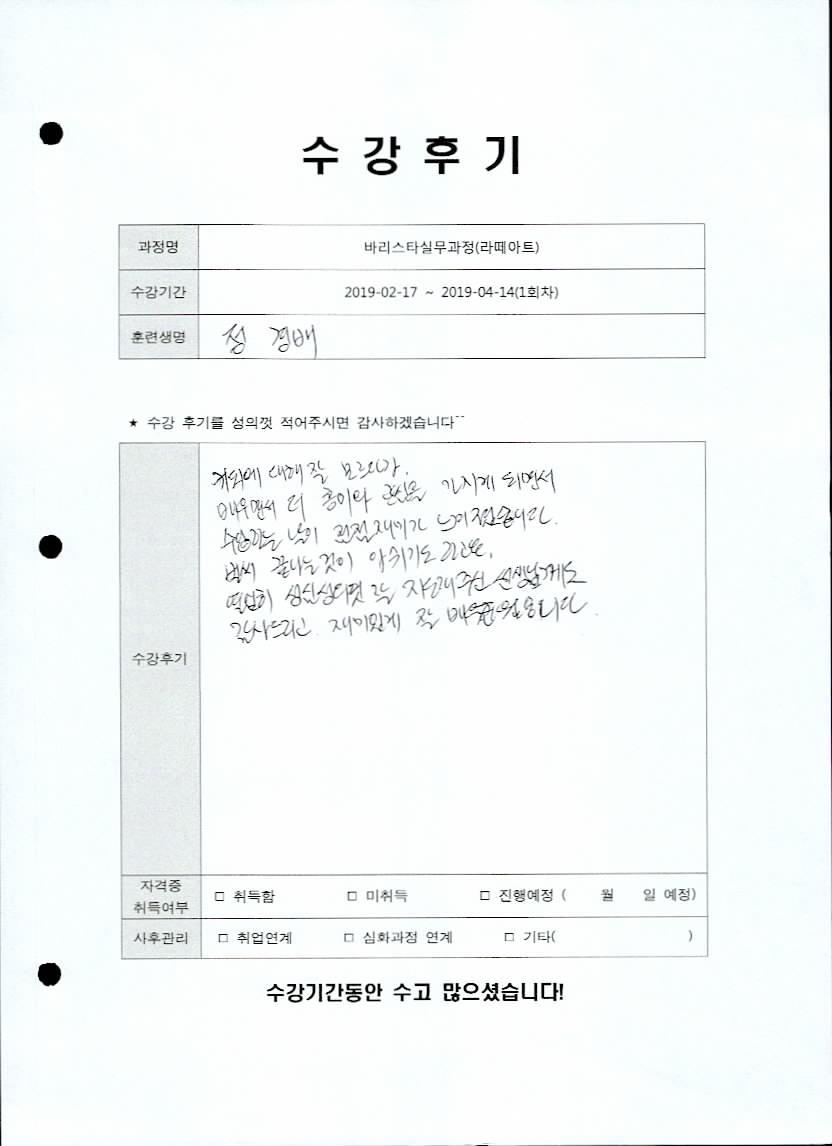 수 강 후 기
과정명 바리스타실무과정(라떼아트)
수강기간 2019-02-17 ~ 2019-04-14(1회차)
훈련생명 정 경배
★ 수강 후기를 성의껏 적어주시면 감사하겠습니다~~
수강후기
커피에 대해 잘 모르다가,
배우면서 더 흥미와 관심을 가지게 되면서
수업하는 날이 점점 재미가 느껴졌습니다.
벌써 끝나는것이 아쉽기도 하고요,
열심히 성심성의껏 잘 지도해주신 선생님께도
감사드리고, 재미있게 잘 배우고 갑니다.
자격증 취득여부 □ 취득함 □ 미취득 □ 진행예정 ( 월 일 예정)
사후관리 □ 취업연계 □ 심화과정 연계 □ 기타( )
수강기간동안 수고 많으셨습니다!